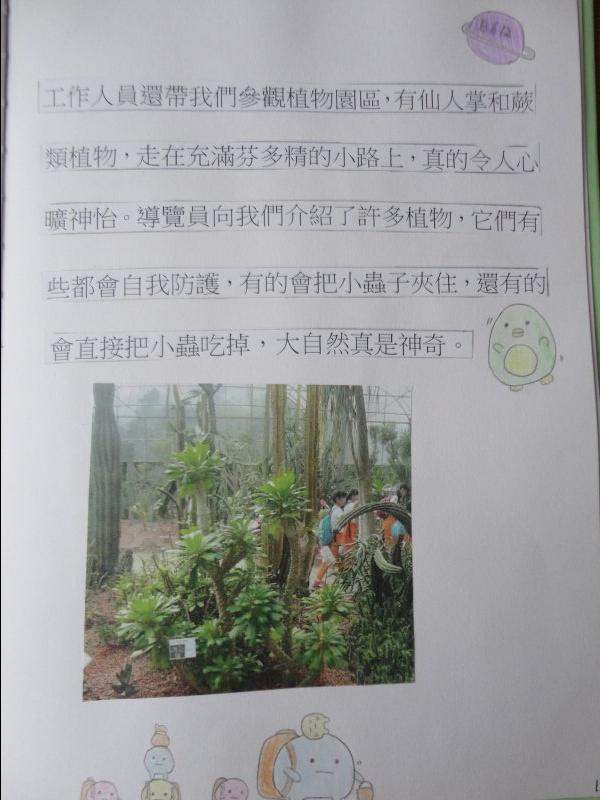 B612
工作人員還帶我們參觀植物園區，有仙人掌和蕨
類植物，走在充滿芬多精的小路上，真的令人心
曠神怡。導覽員向我們介紹了許多植物，它們有
些都會自我防護，有的會把小蟲子夾住，還有的
會直接把小蟲吃掉，大自然真是神奇。